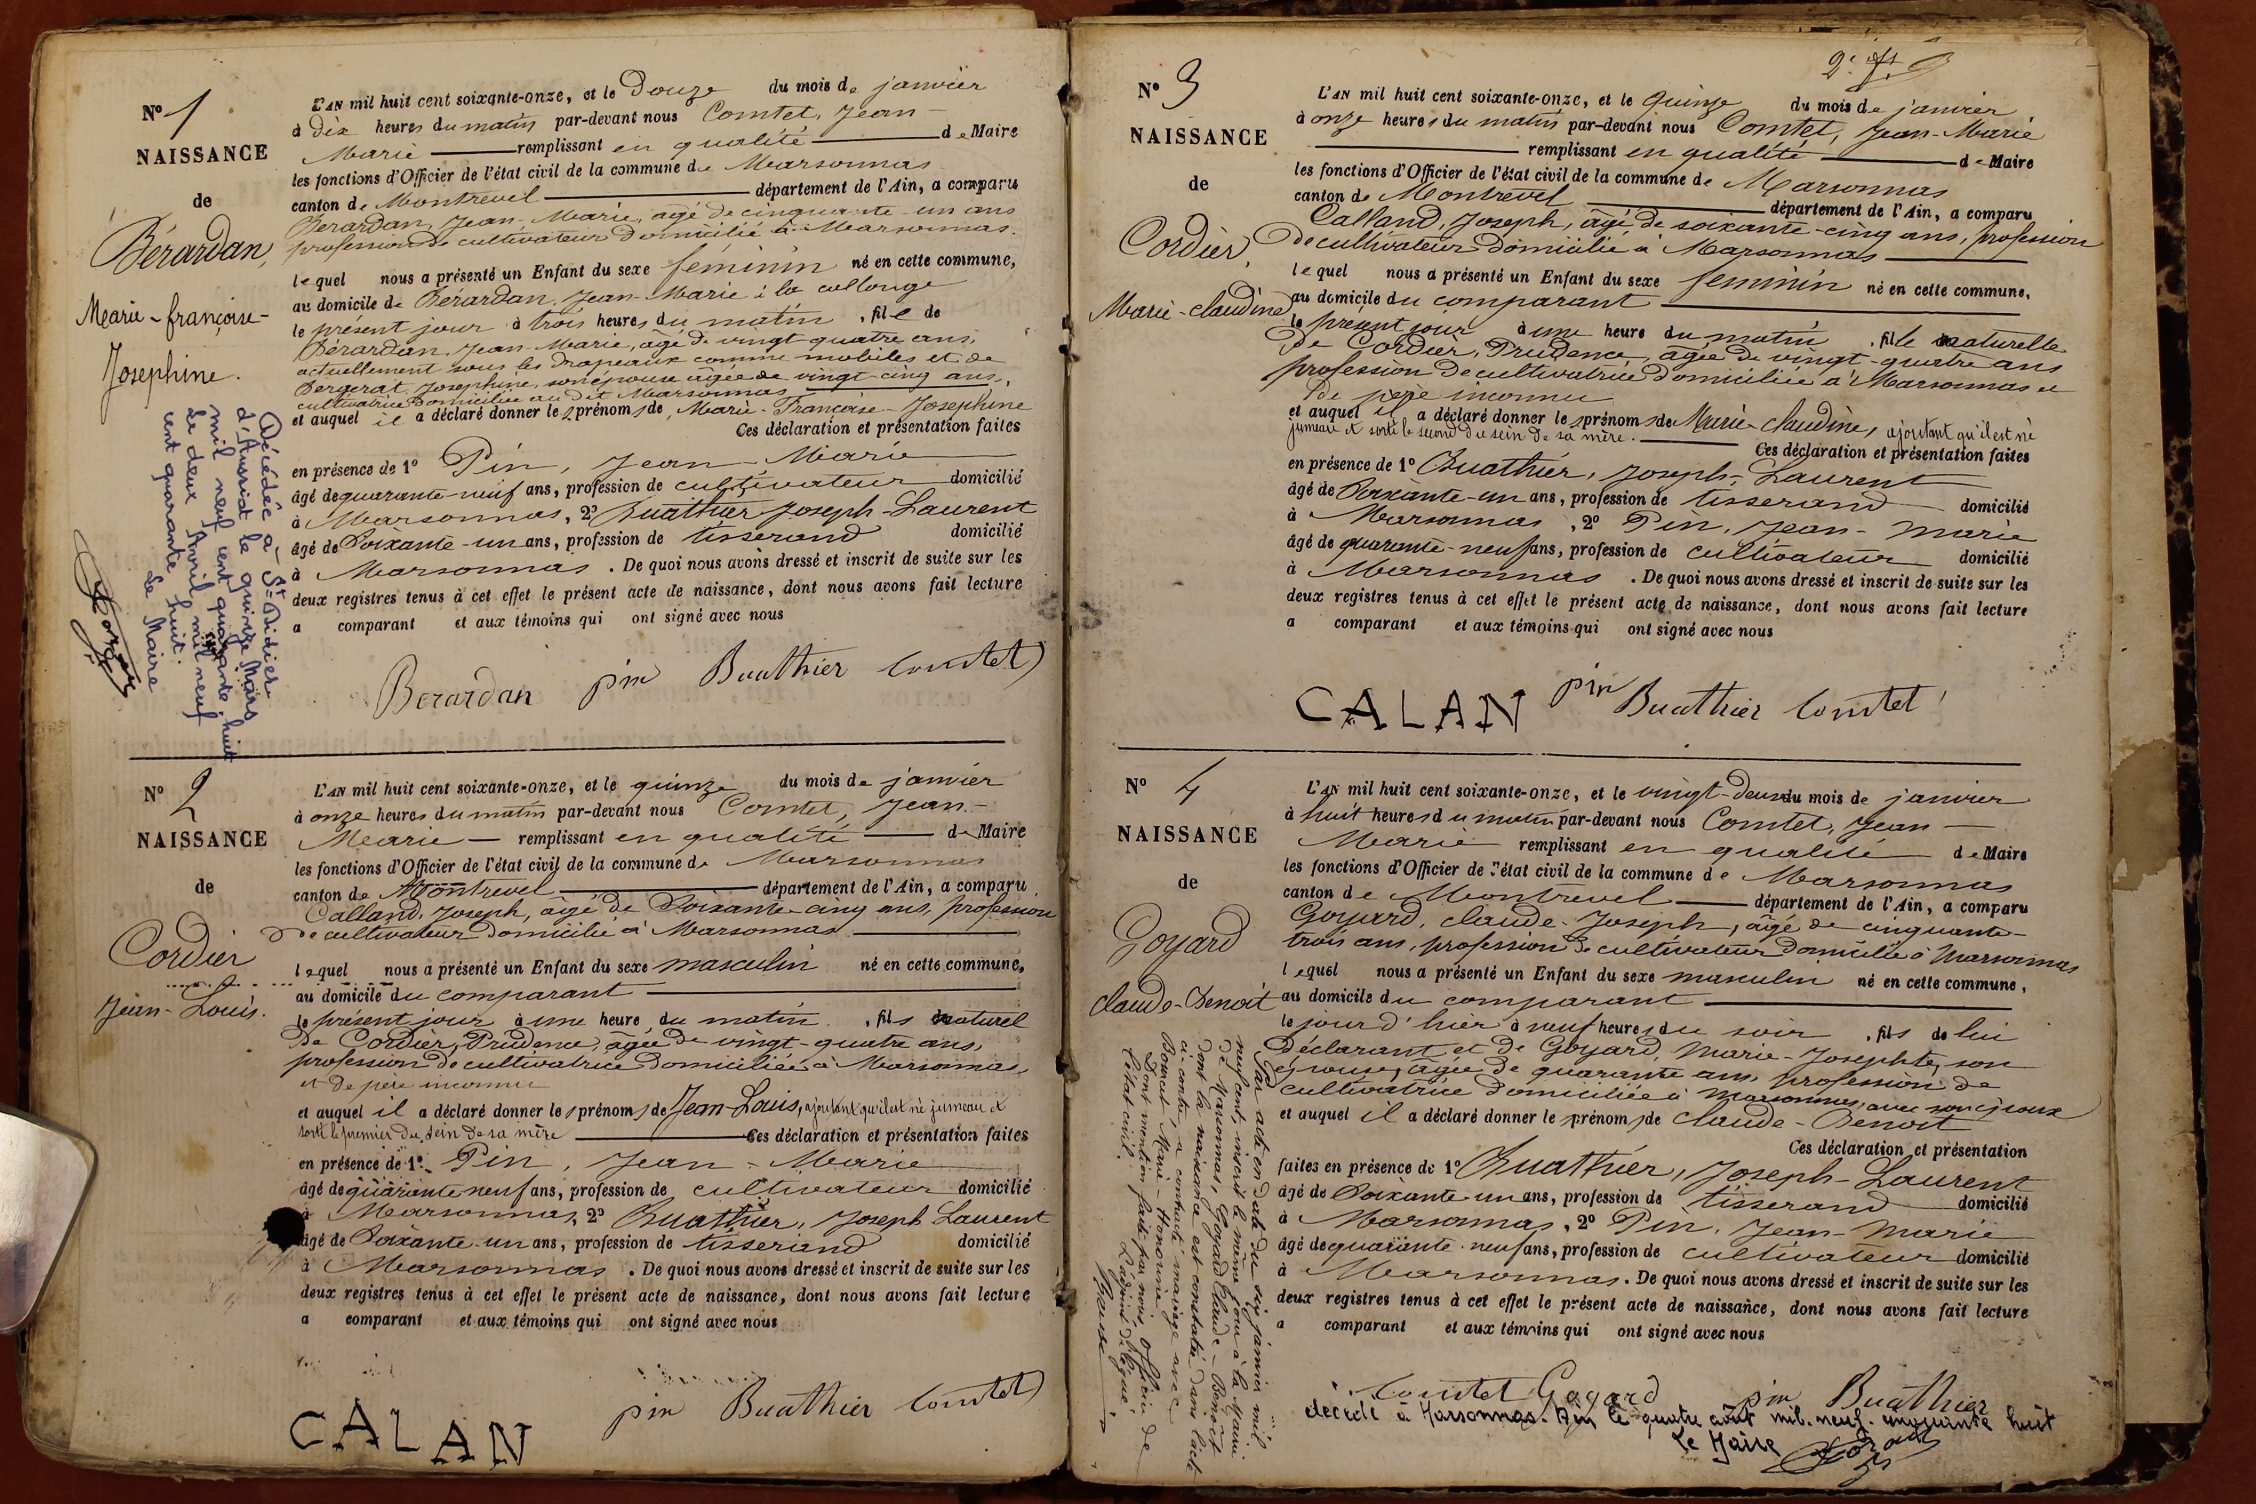 N° 1
NAISSANCE
de
Bérardan,
Marie-françoise-
Josephine.
L'AN mil huit cent soixante-onze, et le Douze du mois de janvier
à dix heures du matin par-devant nous Comtet, Jean-
Marie remplissant en qualité de Maire
les fonctions d'Officier de l'état civil de la commune de Marsonnas
canton de Montrevel département de l'Ain, a comparu
Bérardan, Jean-Marie, agé de cinquante-un ans
profession de cultivateur domicilié à Marsonnas.
lequel nous a présenté un Enfant du sexe feminin né en cette commune,
au domicile de Bérardan, Jean-Marie à la collonge
le présent jour à trois heures du matin, fille de
Bérardan, Jean-Marie, agé de vingt quatre ans,
actuellement sous les drapeaux comme mobiles et de
Bergerat, Josephine, son épouse agée de vingt cinq ans,
cultivatrice domiciliée au dit Marsonnas
et auquel il a déclaré donner les prénoms de Marie-Françoise-Josephine
Ces déclaration et présentation faites
en présence de 1° Pin, Jean-Marie
âgé de quarante-neuf ans, profession de cultivateur domicilié
à Marsonnas, 2° Buathier Joseph-Laurent
âgé de Soixante-un ans, profession de tisserand domicilié
à Marsonnas. De quoi nous avons dressé et inscrit de suite sur les
deux registres tenus à cet effet le présent acte de naissance, dont nous avons fait lecture
a comparant et aux témoins qui ont signé avec nous
Berardan pin Buathier Comtet
Décédée à St-Didier
d'Aussiat le quinze Mars
mil neuf cent quarante huit
Le deux Avril mil neuf
cent quarante huit.
Le Maire
N° 2
NAISSANCE
de
Cordier
Jean-Louis.
L'AN mil huit cent soixante-onze, et le quinze du mois de janvier
à onze heures du matin par-devant nous Comtet, Jean-
Marie remplissant en qualité de Maire
les fonctions d'Officier de l'état civil de la commune de Marsonnas
canton de Montrevel département de l'Ain, a comparu
Calland, Joseph, âgé de Soixante-cinq ans, profession
de cultivateur domicilié à Marsonnas
lequel nous a présenté un Enfant du sexe masculin né en cette commune,
au domicile du comparant
le présent jour à une heure du matin, fils naturel
de Cordier, Prudence, agée de vingt-quatre ans,
profession de cultivatrice domiciliée à Marsonnas,
et de père inconnu
et auquel il a déclaré donner les prénoms de Jean-Louis, ajoutant qu'il est né jumeau et
sorti le premier du sein de sa mère Ces déclaration et présentation faites
en présence de 1° Pin, Jean-Marie
âgé de quarante neuf ans, profession de cultivateur domicilié
à Marsonnas, 2° Buathier, Joseph Laurent
âgé de Soixante-un ans, profession de tisserand domicilié
à Marsonnas. De quoi nous avons dressé et inscrit de suite sur les
deux registres tenus à cet effet le présent acte de naissance, dont nous avons fait lecture
a comparant et aux témoins qui ont signé avec nous
CALAN pin Buathier Comtet
N° 3
NAISSANCE
de
Cordier,
Marie-claudine
L'AN mil huit cent soixante-onze, et le quinze du mois de janvier
à onze heures du matin par-devant nous Comtet, Jean-Marie
remplissant en qualité de Maire
les fonctions d'Officier de l'état civil de la commune de Marsonnas
canton de Montrevel département de l'Ain, a comparu
Calland, Joseph, âgé de soixante-cinq ans, profession
de cultivateur domicilié à Marsonnas
lequel nous a présenté un Enfant du sexe feminin né en cette commune,
au domicile du comparant
le présent jour à une heure du matin, fille naturelle
de Cordier, Prudence, agée de vingt-quatre ans
profession de cultivatrice domiciliée à Marsonnas et
de père inconnu
et auquel il a déclaré donner les prénoms de Marie-claudine, ajoutant qu'il est né
jumeau et sorti le second du sein de sa mère. Ces déclaration et présentation faites
en présence de 1° Buathier, Joseph-Laurent
âgé de Soixante-un ans, profession de tisserand domicilié
à Marsonnas, 2° Pin, Jean-Marie
âgé de quarante-neuf ans, profession de cultivateur domicilié
à Marsonnas. De quoi nous avons dressé et inscrit de suite sur les
deux registres tenus à cet effet le présent acte de naissance, dont nous avons fait lecture
a comparant et aux témoins qui ont signé avec nous
CALAN pin Buathier Comtet
N° 4
NAISSANCE
de
Goyard
claude-Benoit
L'AN mil huit cent soixante-onze, et le vingt-deux du mois de janvier
à huit heures du matin par-devant nous Comtet, Jean-
Marie remplissant en qualité de Maire
les fonctions d'Officier de l'état civil de la commune de Marsonnas
canton de Montrevel département de l'Ain, a comparu
Goyard, claude-Joseph, âgé de cinquante-
trois ans, profession de cultivateur domicilié à Marsonnas
lequel nous a présenté un Enfant du sexe masculin né en cette commune,
au domicile du comparant
le jour d'hier à neuf heures du soir, fils de lui
déclarant et de Goyard, Marie-Josephte, son
épouse, agée de quarante ans, profession de
cultivatrice domiciliée à Marsonnas, avec son époux
et auquel il a déclaré donner les prénoms de claude-Benoit
Ces déclaration et présentation
faites en présence de 1° Buathier, Joseph-Laurent
âgé de Soixante-un ans, profession de tisserand domicilié
à Marsonnas, 2° Pin, Jean-Marie
âgé de quarante-neuf ans, profession de cultivateur domicilié
à Marsonnas. De quoi nous avons dressé et inscrit de suite sur les
deux registres tenus à cet effet le présent acte de naissance, dont nous avons fait lecture
a comparant et aux témoins qui ont signé avec nous
Comtet Goyard pin Buathier
décédé à Marsonnas-Ain le quatre août mil-neuf-cinquante huit
Le Maire
Par acte en date du six janvier mil
neuf cent, inscrit le même jour à la Mairie
de Marsonnas, Goyard Claude-Benoît
dont la naissance est constatée dans l'acte
ci-contre, a contracté mariage avec
Bourcet, Marie-Honorine.
Dont mention faite par nous, officier de
l'état civil. L'adjoint délégué,